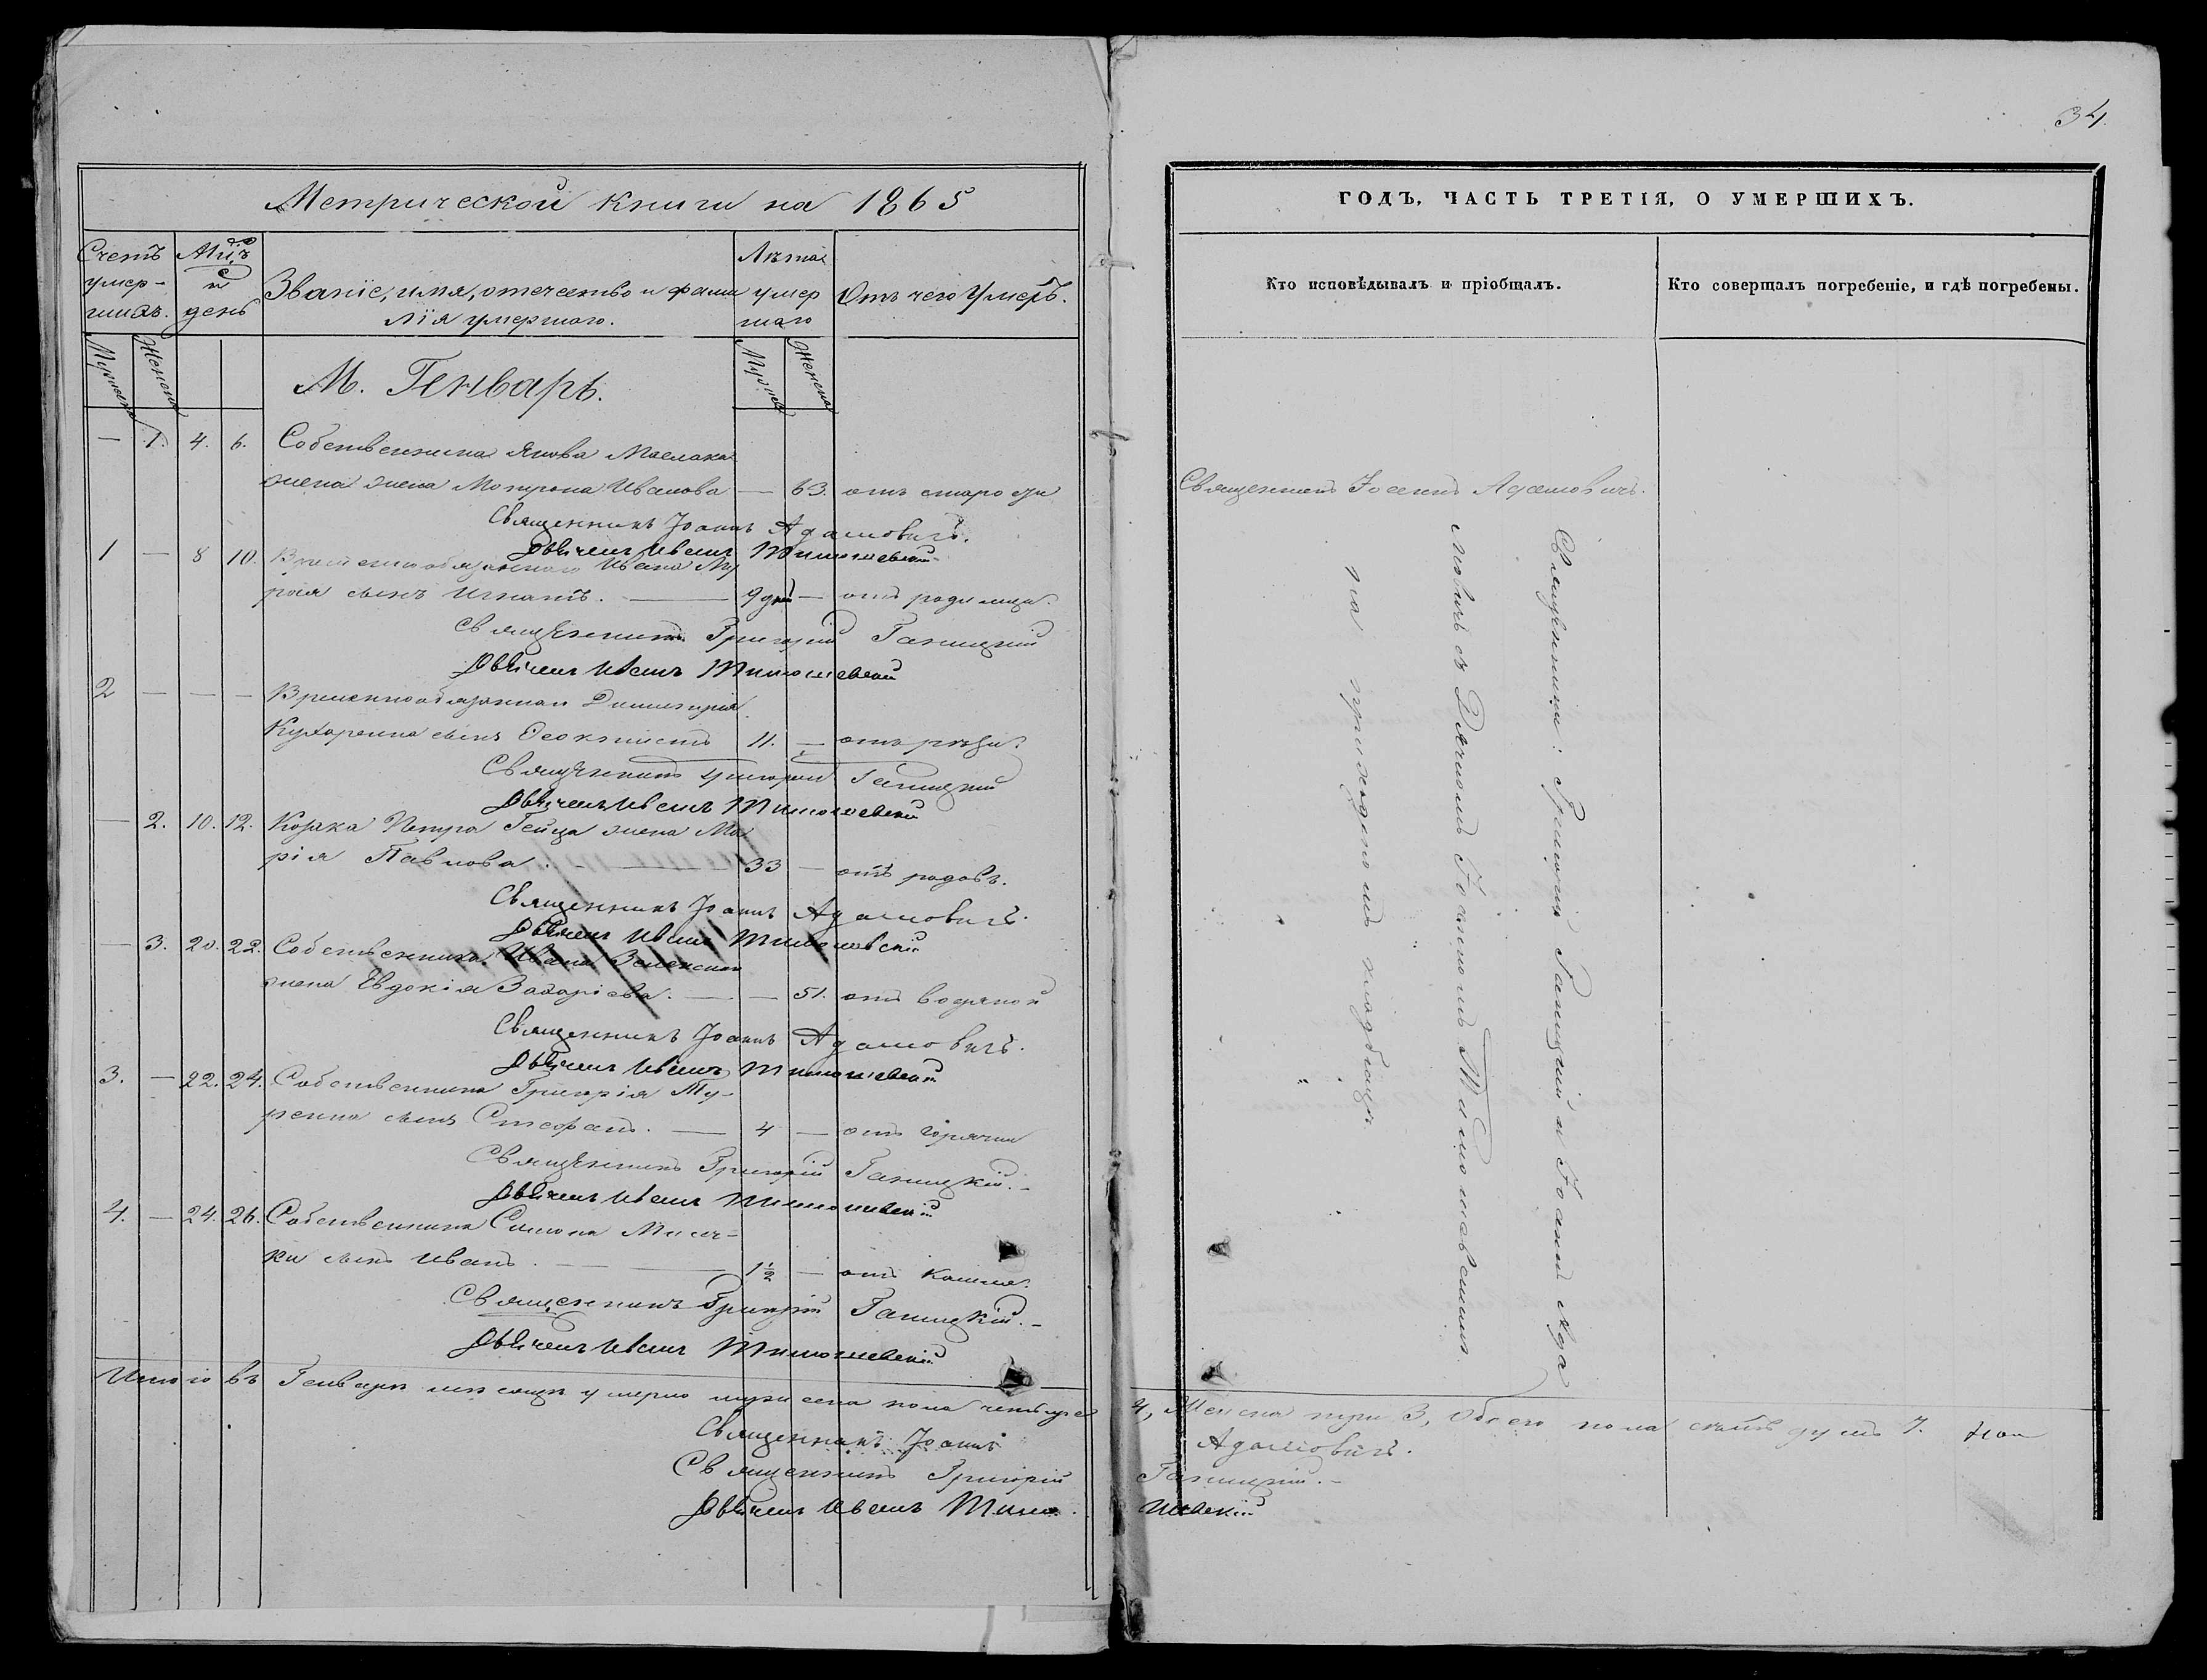 34.
Метрической книги на 1865
Счетъ умер-шихъ.
Мцъ и день
Званіе, имя, отечество и фами
лія умершаго.
Лѣта умер шаго
Отъ чего Умеръ.
Мужеска
Женска
Муж
Женска
М. Генварь.
— 1. 4. 6. Собственника Якова
жена Иванова — 63. отъ старости
Священникъ Іоаннъ Адамовичъ.
Дьячекъ Иванъ
1 — 8 10. Временнообязаннаго Ивана Му
рая сынъ Игнатъ. — 9 дній — отъ родимца.
Священникъ Григорій Ганицкій
Дьячекъ Иванъ
2 — — — Временнообязаннаго Димитрія
Кухаренка сынъ Феоктистъ 11. —
Священникъ Григорій Ганицкій
Дьячекъ Иванъ
— 2. 10. 12. Козака Петра Гейца жена Ма
рія Павлова. — 33 — отъ родовъ.
Священникъ Іоаннъ Адамовичъ.
Дьячекъ Иванъ
— 3. 20. 22. Собственника Ивана
жена Евдокія Захаріева. — — 51. отъ водяной
Священникъ Іоаннъ Адамовичъ.
Дьячекъ Иванъ
3. — 22. 24. Собственника Григорія Ту-
ренка сынъ Стефанъ. — 4 — отъ горячки
Священникъ Григорій Ганицкій. -
Дьячекъ Иванъ
4. — 24. 26. Собственника Симона
ки сынъ Иванъ. — 1½ — отъ кашля.
Священникъ Григорій Ганицкій. -
Дьячекъ Иванъ
Итого въ Генварѣ мѣсяцѣ умерло мужеска пола четыре
4, Женска три 3, Обоего пола семь душъ 7.
Священникъ Іоаннъ Адамовичъ.
Священникъ Григорій Ганицкій. -
Дьячекъ Иванъ
ГОДЪ, ЧАСТЬ ТРЕТІЯ, О УМЕРШИХЪ.
Кто исповѣдывалъ и пріобщалъ.
Кто совершалъ погребеніе, и гдѣ погребены.
Священникъ Іоаннъ Адамовичъ.
Священники: Григорій Ганицкій и Іоаннъ Ада
мовичъ съ Дячкомъ Іоанномъ
на приходскомъ кладбищѣ